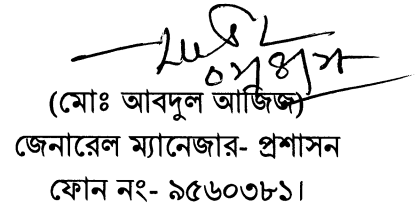 (মোঃ আবদুল আজিজ)
জেনারেল ম্যানেজার- প্রশাসন
ফোন নং- ৯৫৬০৩৮১।